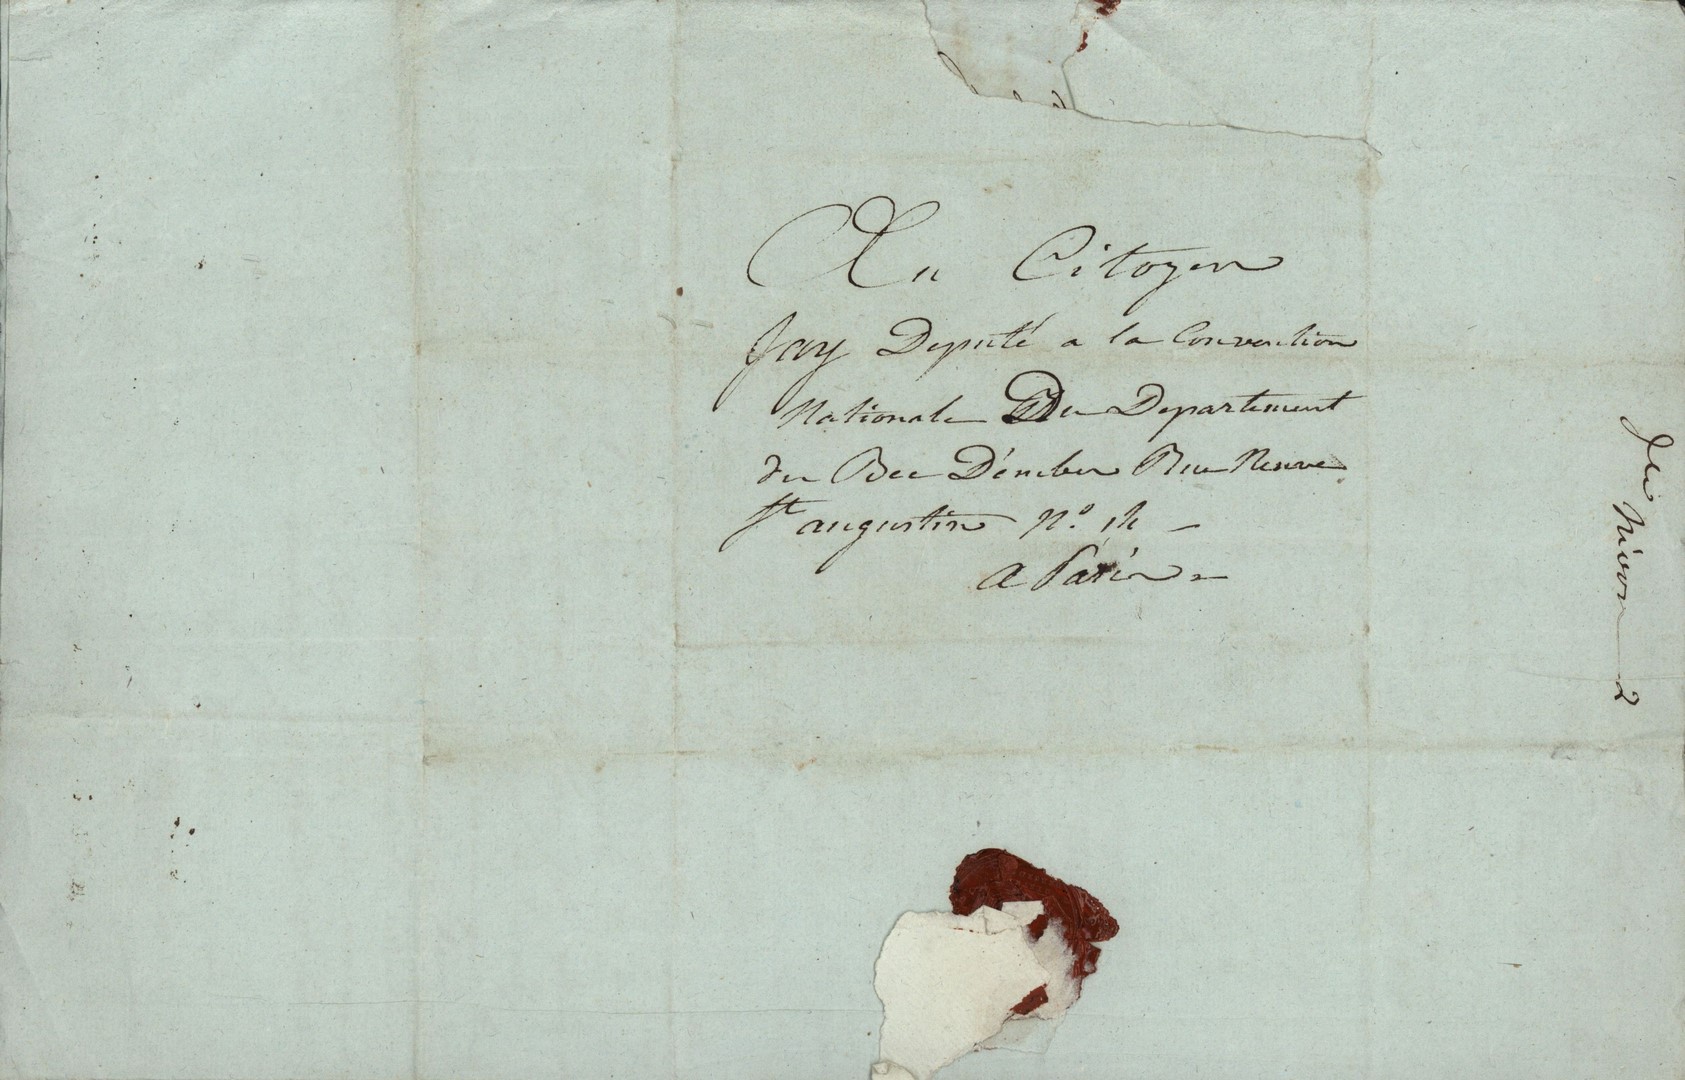 Au Citoyen
Jay Deputé a la Convention
Nationale Du Departement
du Bec D'émber Rue Neuve
St augustin N.o 14
A Paris
Du Nivon 2